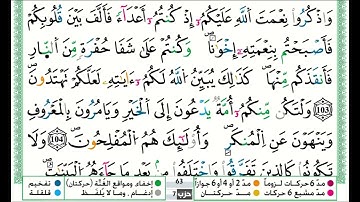 وَاذْكُرُوا نِعْمَتَ اللَّهِ عَلَيْكُمْ إِذْ كُنتُمْ أَعْدَاءً فَأَلَّفَ بَيْنَ قُلُوبِكُمْ
فَأَصْبَحْتُم بِنِعْمَتِهِ إِخْوَانًا وَكُنتُمْ عَلَىٰ شَفَا حُفْرَةٍ مِّنَ النَّارِ
فَأَنقَذَكُم مِّنْهَا كَذَٰلِكَ يُبَيِّنُ اللَّهُ لَكُمْ آيَاتِهِ لَعَلَّكُمْ تَهْتَدُونَ
103 وَلْتَكُن مِّنكُمْ أُمَّةٌ يَدْعُونَ إِلَى الْخَيْرِ وَيَأْمُرُونَ بِالْمَعْرُوفِ
وَيَنْهَوْنَ عَنِ الْمُنكَرِ وَأُولَٰئِكَ هُمُ الْمُفْلِحُونَ 104 وَلَا
تَكُونُوا كَالَّذِينَ تَفَرَّقُوا وَاخْتَلَفُوا مِن بَعْدِ مَا جَاءَهُمُ الْبَيِّنَاتُ
مدّ 6 حركات لزوماً مدّ 2 أو 4 أو 6 جوازاً 63 إخفاء، ومواقع الغُنَّة (حركتان) تفخيم
مدّ مشبع 6 حركات مدّ حركتان حزب 7 إدغام، وما لا يُلفَظ قلقلة